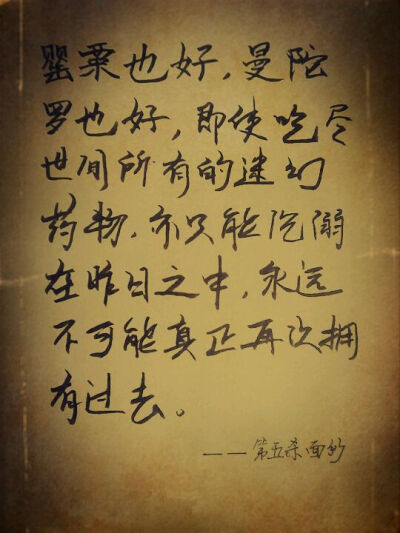 罂粟也好，曼陀
罗也好，即使吃尽
世间所有的迷幻
药物，亦只能沉溺
在昨日之中，永远
不可能真正再次拥
有过去。
——第五杀面纱